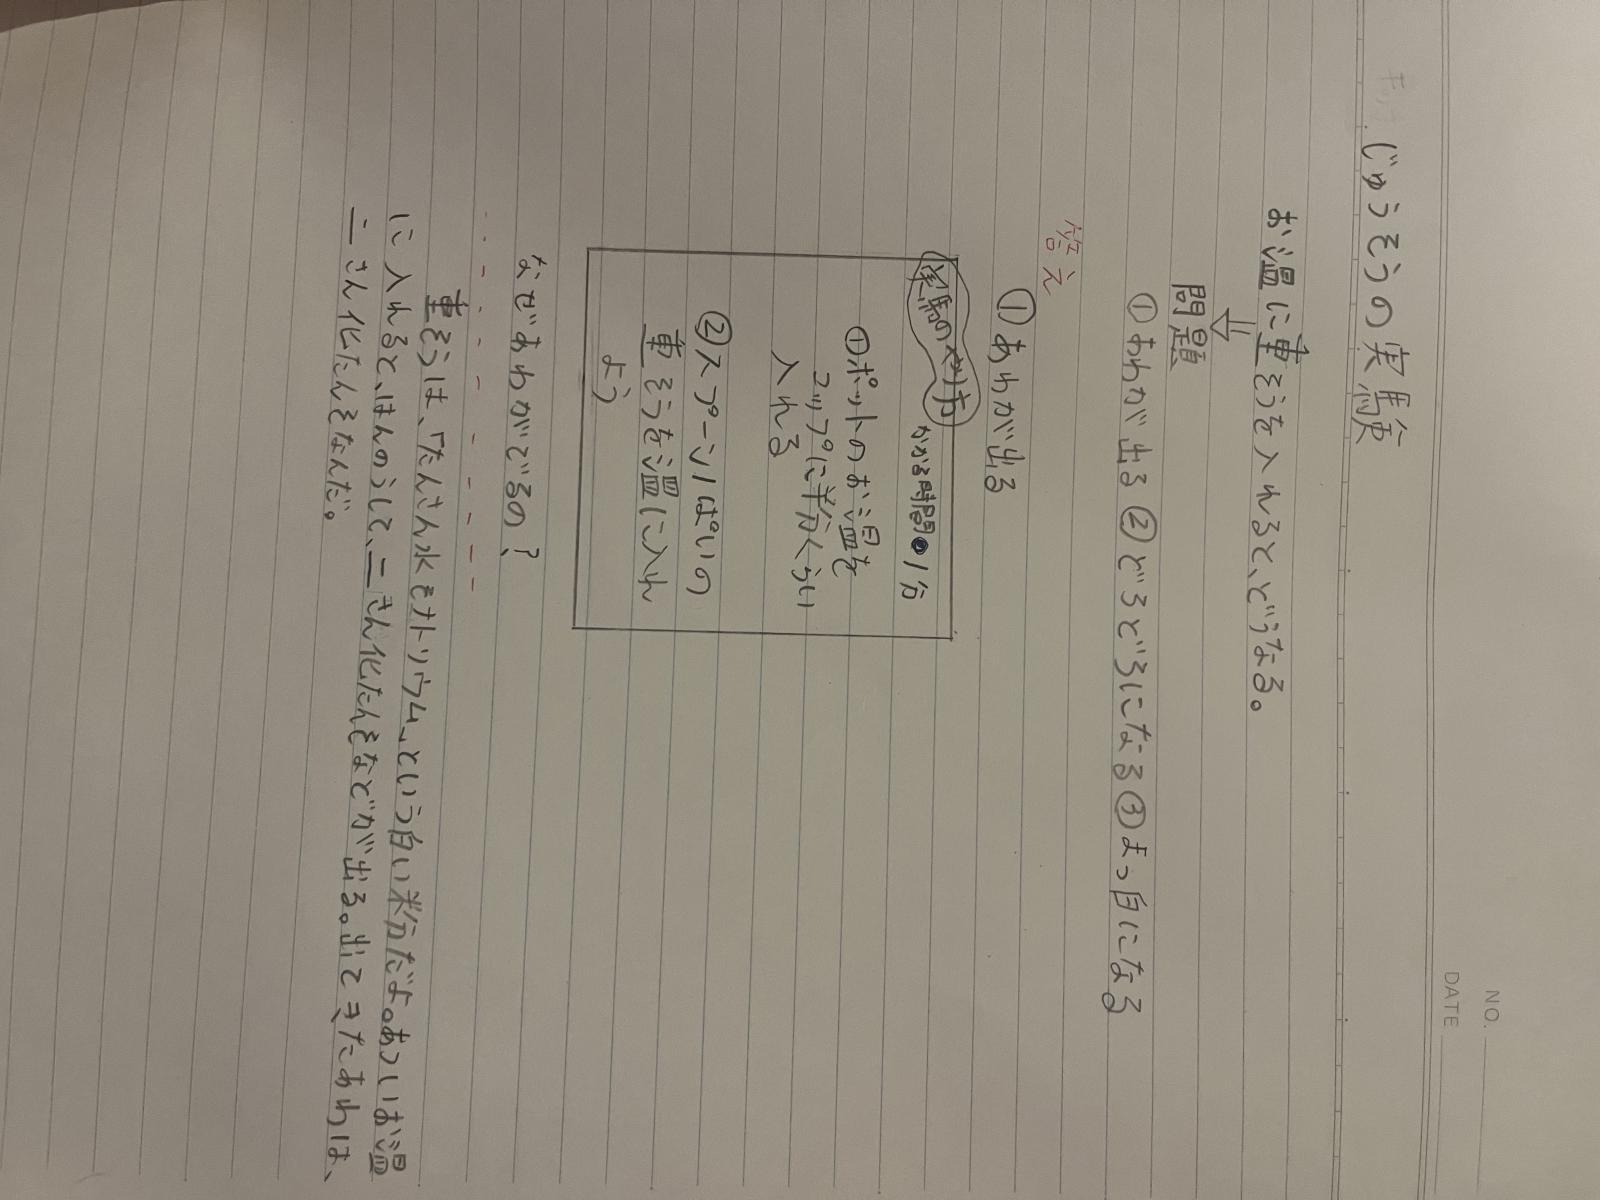 NO.
DATE
じゅうそうの実験
お温に重そうを入れると、どうなる。
⇓
問題
①あわが出る②どろどろになる③まっ白になる
答え
①あわが出る
実験のやり方 かかる時間●1分
①ポットのお温を
コップに半分くらい
入れる
②スプーン1ぱいの
重そうを温に入れ
よう
なぜあわがでるの?
重そうは、「たんさん水そナトリウム」という白い粉だよ。あつしいお温
に入れると、はんのうして、二さん化たんそなどが出る。出てきたあわは、
二さん化たんそなんだ。